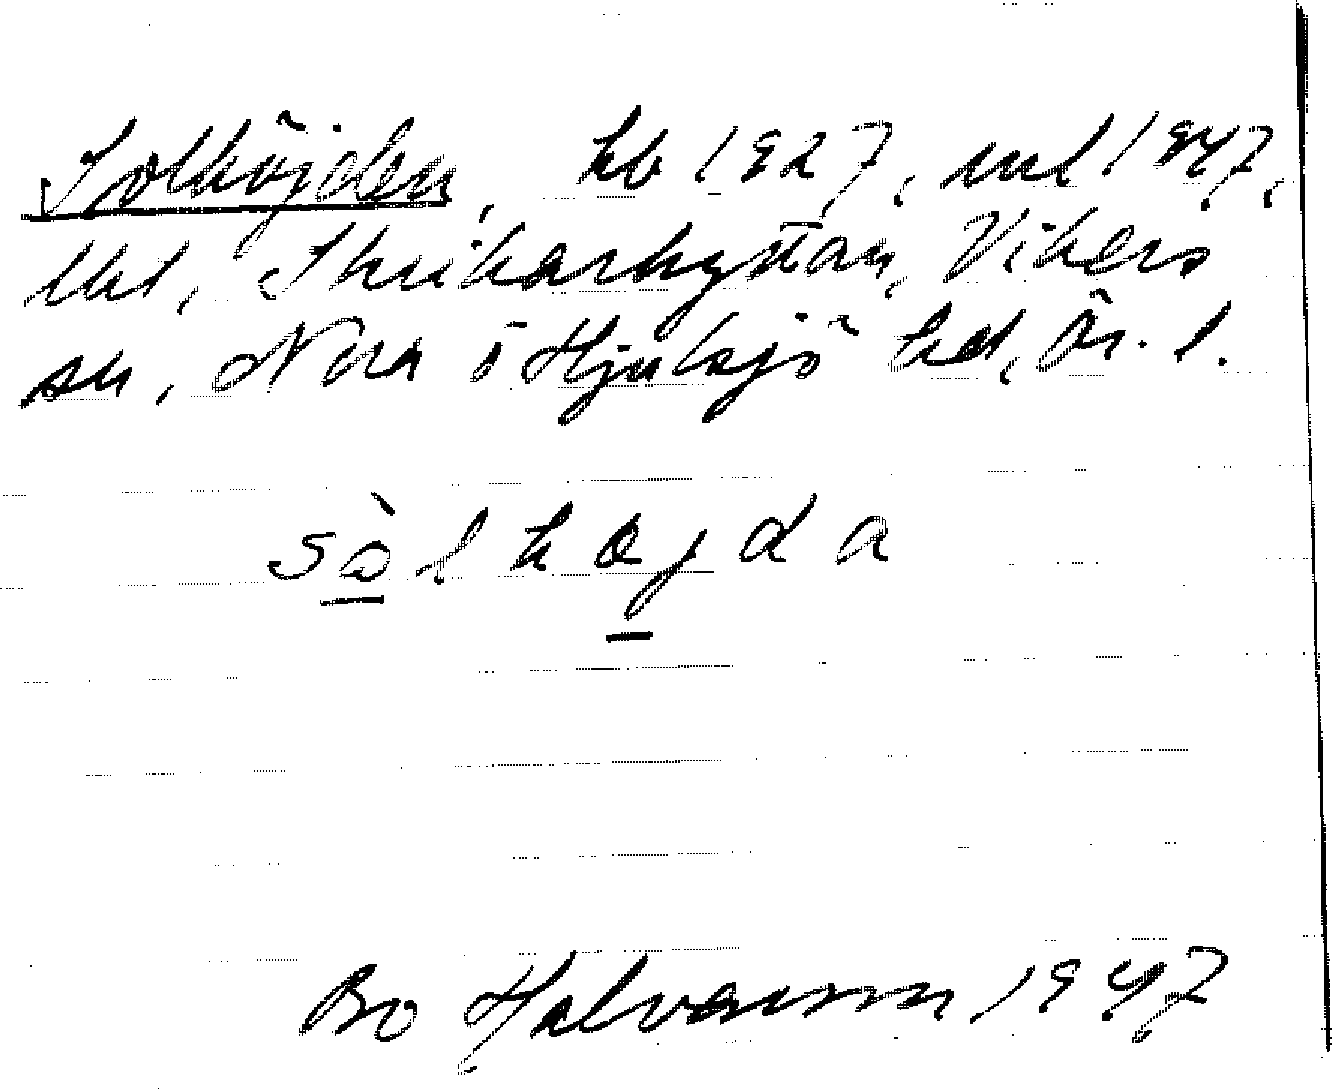 Solhöjden, kb 1927, ml 1947,
lht, Skrikarhyttan, Vikers
sn, Nora o Hjulsjö hd, Ör. l.
sòlhøjda
Bo Halvarson 1947